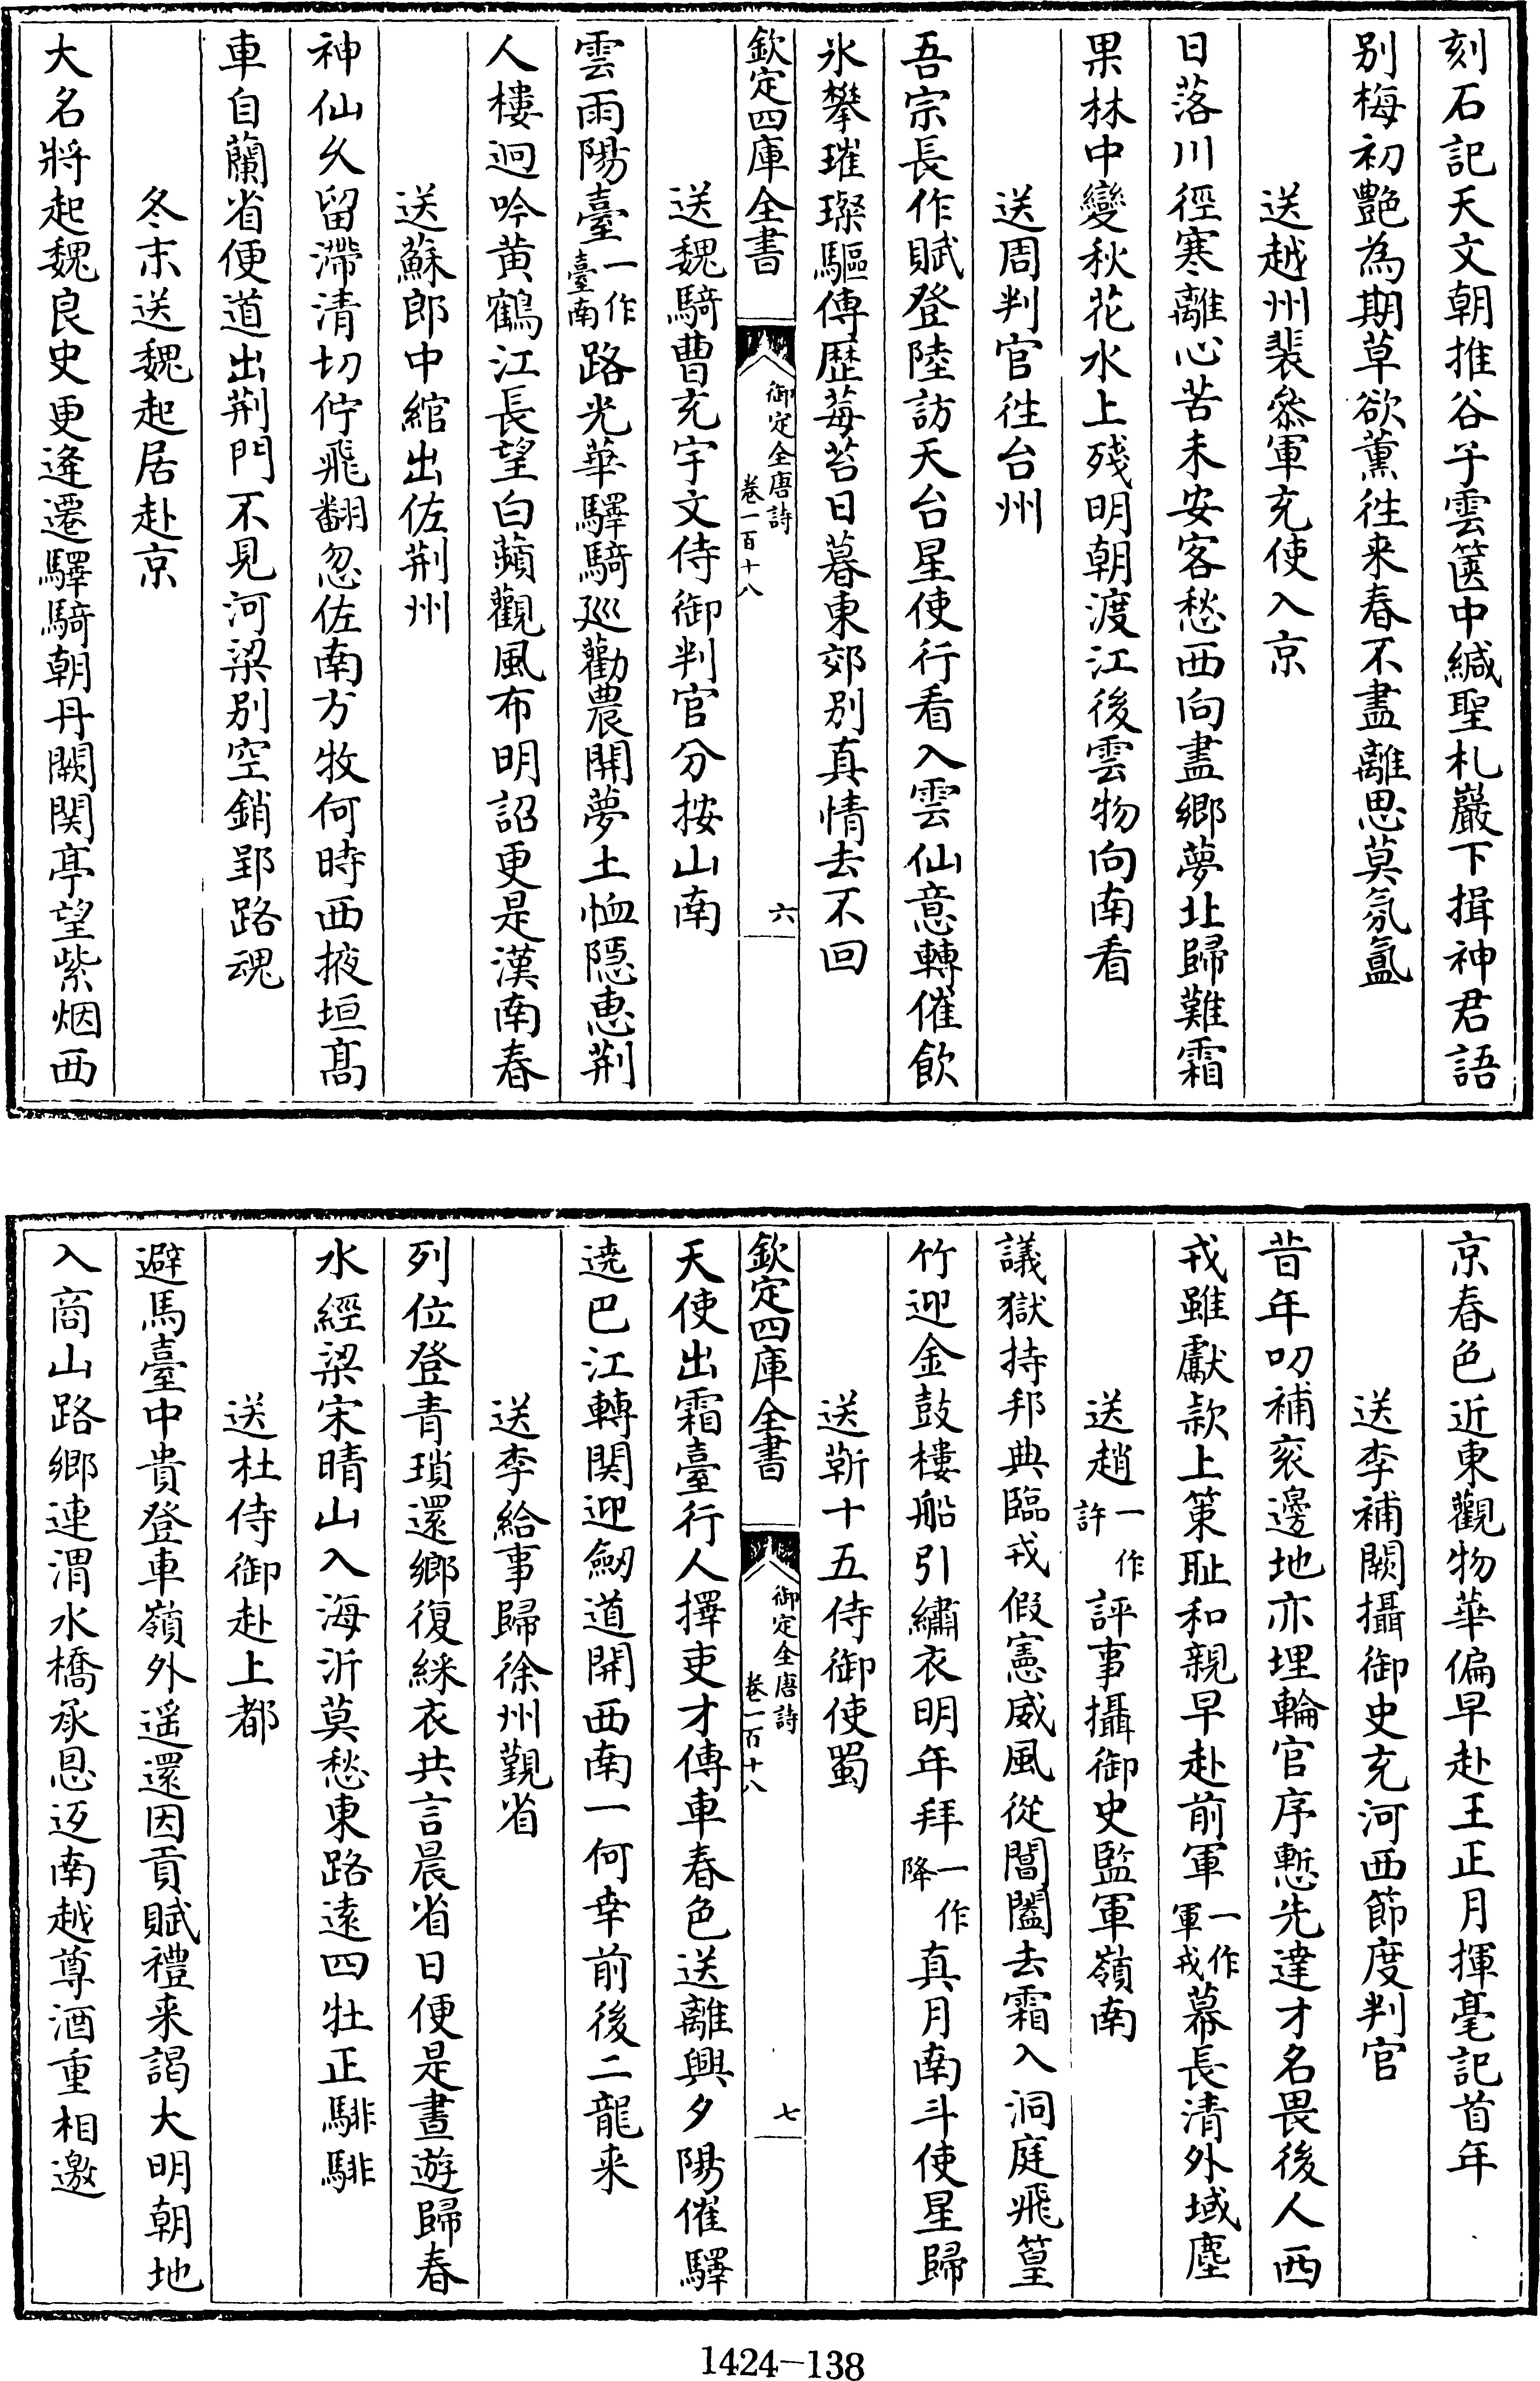 刻石記天文朝推谷子雲篋中緘聖札巖下揖神君語
别梅初艷為期草欲薰徃来春不盡離思莫氛氲
送越州裴叅軍充使入京
日落川徑寒離心苦未安客愁西向盡鄉夢北歸難霜
果林中變秋花水上殘明朝渡江後雲物向南看
送周判官徃台州
吾宗長作賦登陸訪天台星使行看入雲仙意轉催飲
氷攀璀璨驅傳歴莓苔日暮東郊别真情去不回
欽定四庫全書
御定全唐詩
卷一百十八
六
送魏騎曹充宇文侍御判官分按山南
雲雨陽臺一作臺南路光華驛騎廵勸農開夢土恤隱惠荆
人樓迥吟黄鶴江長望白蘋觀風布明詔更是漢南春
送蘇郎中綰出佐荆州
神仙久留滯清切佇飛翻忽佐南方牧何時西掖垣髙
車自蘭省便道出荆門不見河梁别空銷郢路魂
冬末送魏起居赴京
大名將起魏良史更逄遷驛騎朝丹闕関亭望紫烟西
京春色近東觀物華偏早赴王正月揮毫記首年
送李補闕攝御史充河西節度判官
昔年叨補衮邊地亦埋輪官序慙先達才名畏後人西
戎雖獻款上策耻和親早赴前軍一作軍戎幕長清外域塵
送趙一作許評事攝御史監軍嶺南
議獄持邦典臨戎假憲威風從閶闔去霜入洞庭飛篁
竹迎金鼓樓船引繡衣明年拜一作降真月南斗使星歸
送靳十五侍御使蜀
欽定四庫全書
御定全唐詩
卷一百十八
七
天使出霜臺行人擇吏才傳車春色送離興夕陽催驛
遶巴江轉関迎劒道開西南一何幸前後二龍来
送李給事歸徐州覲省
列位登青瑣還鄉復綵衣共言晨省日便是晝遊歸春
水經梁宋晴山入海沂莫愁東路遠四牡正騑騑
送杜侍御赴上都
避馬臺中貴登車嶺外遥還因貢賦禮来謁大明朝地
入商山路鄉連渭水橋承恩返南越尊酒重相邀
1424-138